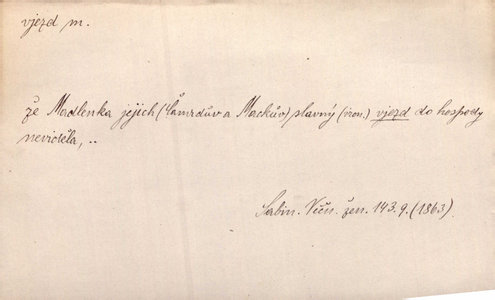 vjezd m.
že Madlenka jejich (Šamrdův a Mackův) slavný (iron.) vjezd do hospody
neviděla, ..
Sabin. Věčn. žen. 143.9. (1863)